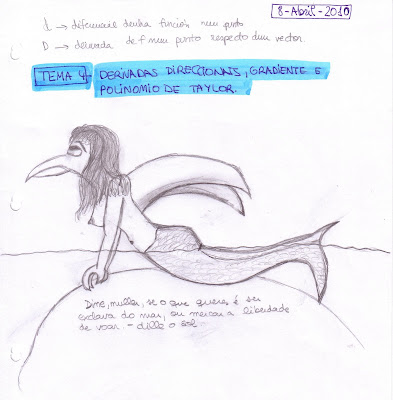 8-Abril-2010
1 → diferencial dunha función nun punto
D → derivada de f nun punto respecto dun vector.
TEMA 4- DERIVADAS DIRECCIONAIS, GRADIENTE E
POLINOMIO DE TAYLOR.
Dime, muller, se o que queres é ser
esclava do mar, ou mercar a liberdade
de voar. - dille o sol